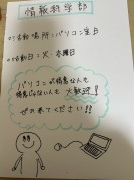 情報科学部
活動場所：パソコン室
活動日：火・木曜日
パソコンが得意な人も
得意じゃない人も大歓迎！
ぜひ来てください!!